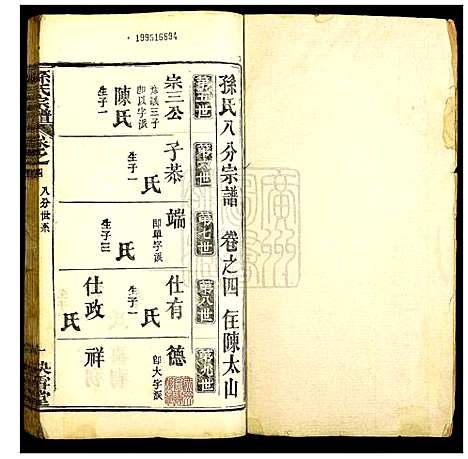 199516894
孫氏八分宗譜 卷之四 住陳太山
第五世
第六世
第七世
第八世
第九世
宗三公
子恭
端
仕有
德
彥誠三子
即以字派
生子一
即單字派
生子一
即大字派
陳氏
氏
氏
仕政
祥
生子一
生子一
生子三
氏
氏
孫氏宗譜
卷之四
八分世系
一
映雪堂